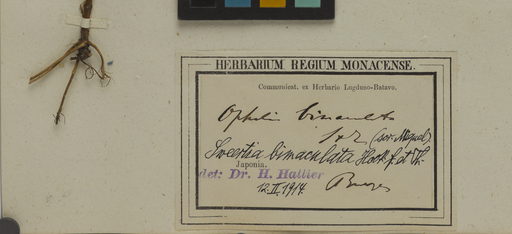 HERBARIUM REGIUM MONACENSE.
Communicat. ex Herbario Lugduno-Batavo.
Ophelia bimaculata
S & Z (sec. Miquel)
Swertia bimaculata Hook f. et Th.
Japonia.
det: Dr. H. Hallier
12.II.1914.